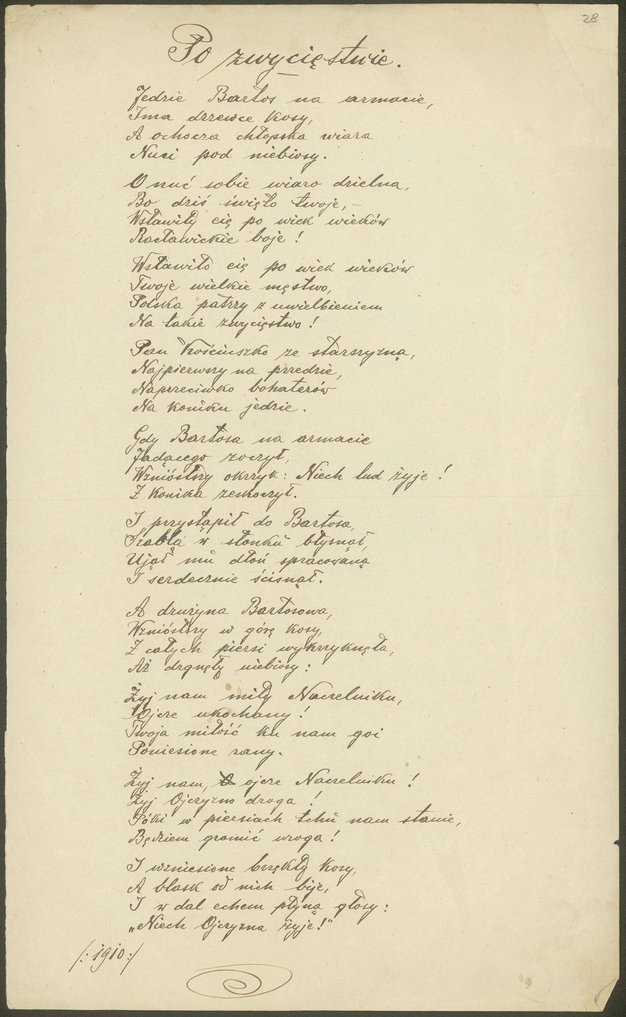 28
Po zwycięstwie.
Jedzie Bartos na armacie,
Ima drzewce kosy,
A ochocza chłopska wiara
Nuci pod niebiosy.
O nuć sobie wiaro dzielna,
Bo dziś święto twoje, –
Wsławiły cię po wiek wieków
Racławickie boje!
Wsławiło cię po wiek wieków
Twoje wielkie męstwo,
Polska patrzy z uwielbieniem
Na takie zwycięstwo!
Pan Kościuszko ze starszyzną,
Najpierwszy na przedzie,
Naprzeciwko bohaterów
Na koniku jedzie.
Gdy Bartosa na armacie
Jadącego zoczył,
Wzniósłszy okrzyk: Niech lud żyje!
Z konika zeskoczył.
I przystąpił do Bartosa,
Szablą w słonku błysnął,
Ujął mu dłoń spracowaną
I serdecznie ścisnął.
A drużyna Bartosowa,
Wzniósłszy w górę kosy,
Z całych piersi wykrzyknęła,
Aż drgnęły niebiosy:
Żyj nam miły Naczelniku,
Ojcze ukochany!
Twoja miłość ku nam goi
Poniesione rany.
Żyj nam, ojcze Naczelniku!
Żyj Ojczyzno droga!
Póki w piersiach tchu nam stanie,
Będziem gromić wroga!
I wzniesione brzękły kosy,
A blask od nich bije,
I w dal echem płyną głosy:
„Niech Ojczyzna żyje!"
/:1910:/